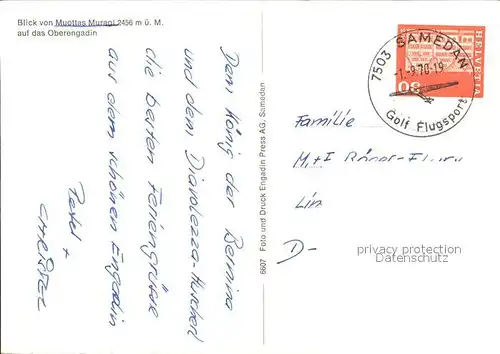 Blick von Muottas Muragl 2456 m ü. M.
auf das Oberengadin
Dem König der Bernina
und dem Diavolezza-
die besten Feriengrüsse
aus dem schönen Engadin
Peter +
Christel
6607 Foto und Druck Engadin Press AG, Samedan
7503 SAMEDAN
-1.-9.70-19
Golf Flugsport
HELVETIA
30
Familie
M+I
D-
privacy protection
Datenschutz